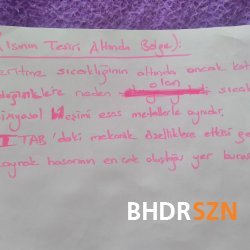 Isının Tesiri Altında Bölge):
eritme sıcaklığının altında ancak katı
değişikliklere neden olan sıcak
kimyasal kesimi esas metallerle aynıdır.
ITAB'daki mekanik özelliklere etkisi
kaynak hasarının en çok oluştuğu yer burası
BHDRSZN